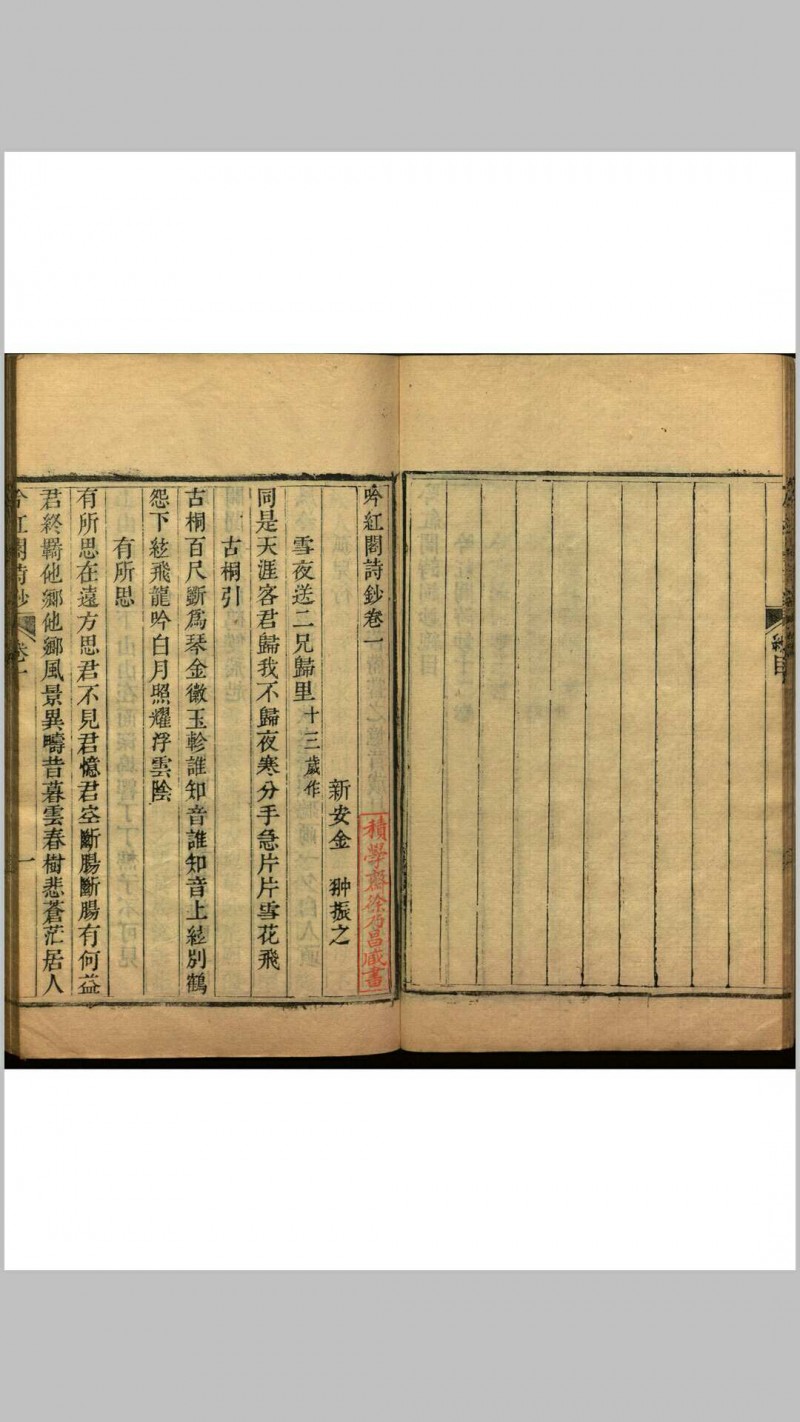 吟紅閣詩鈔卷一
新安金　翀振之
積學齋徐乃昌藏書
雪夜送二兄歸里十三歲作
同是天涯客君歸我不歸夜寒分手急片片雪花飛
古桐引
古桐百尺斵爲琴金徽玉軫誰知音誰知音上絃別鶴
怨下絃飛龍吟白月照耀浮雲陰
有所思
有所思在遠方思君不見君憶君空斷腸斷腸有何益
君終羇他鄉他鄉風景異疇昔暮雲春樹悲蒼茫居人
吟紅閣詩鈔
卷一
一